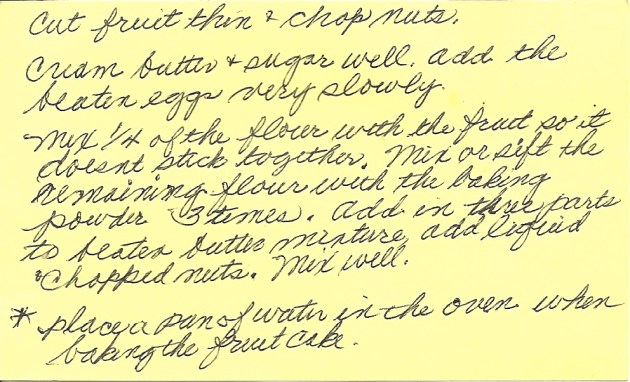 Cut fruit thin & chop nuts.
Cream butter & sugar well. add the
beaten eggs very slowly.
Mix 1/4 of the flour with the fruit so it
doesnt stick together. Mix or sift the
remaining flour with the baking
powder 3 times. Add in three parts
to beaten butter mixture add
& Chopped nuts. Mix well.
* place a pan of water in the oven when
baking the fruit cake.